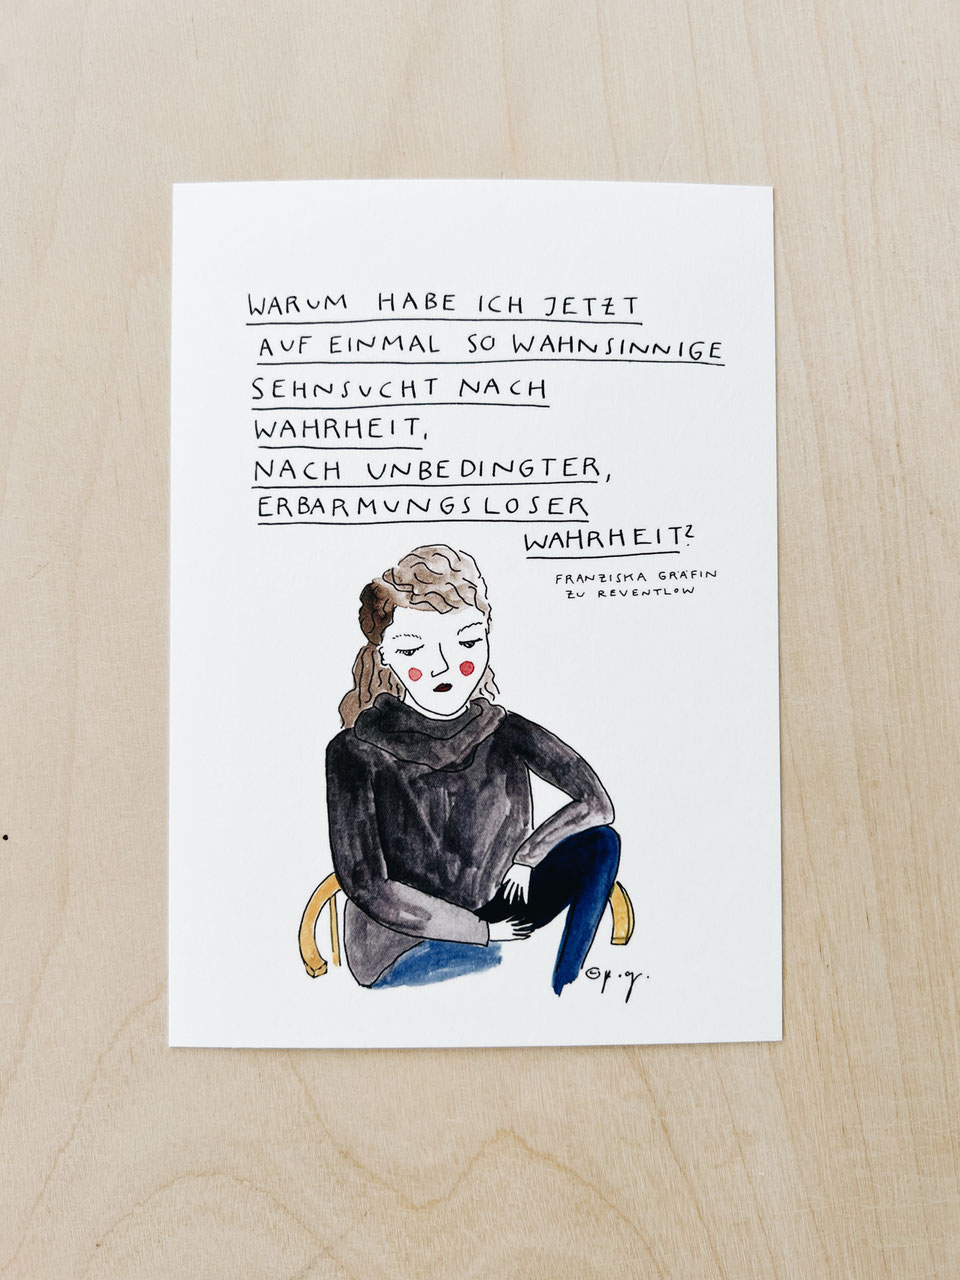 WARUM HABE ICH JETZT
AUF EINMAL SO WAHNSINNIGE
SEHNSUCHT NACH
WAHRHEIT,
NACH UNBEDINGTER,
ERBARMUNGSLOSER
WAHRHEIT?
FRANZISKA GRÄFIN
ZU REVENTLOW